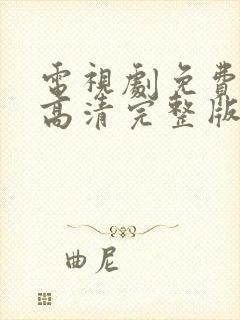 電視劇免費
高清完整版
曲尼